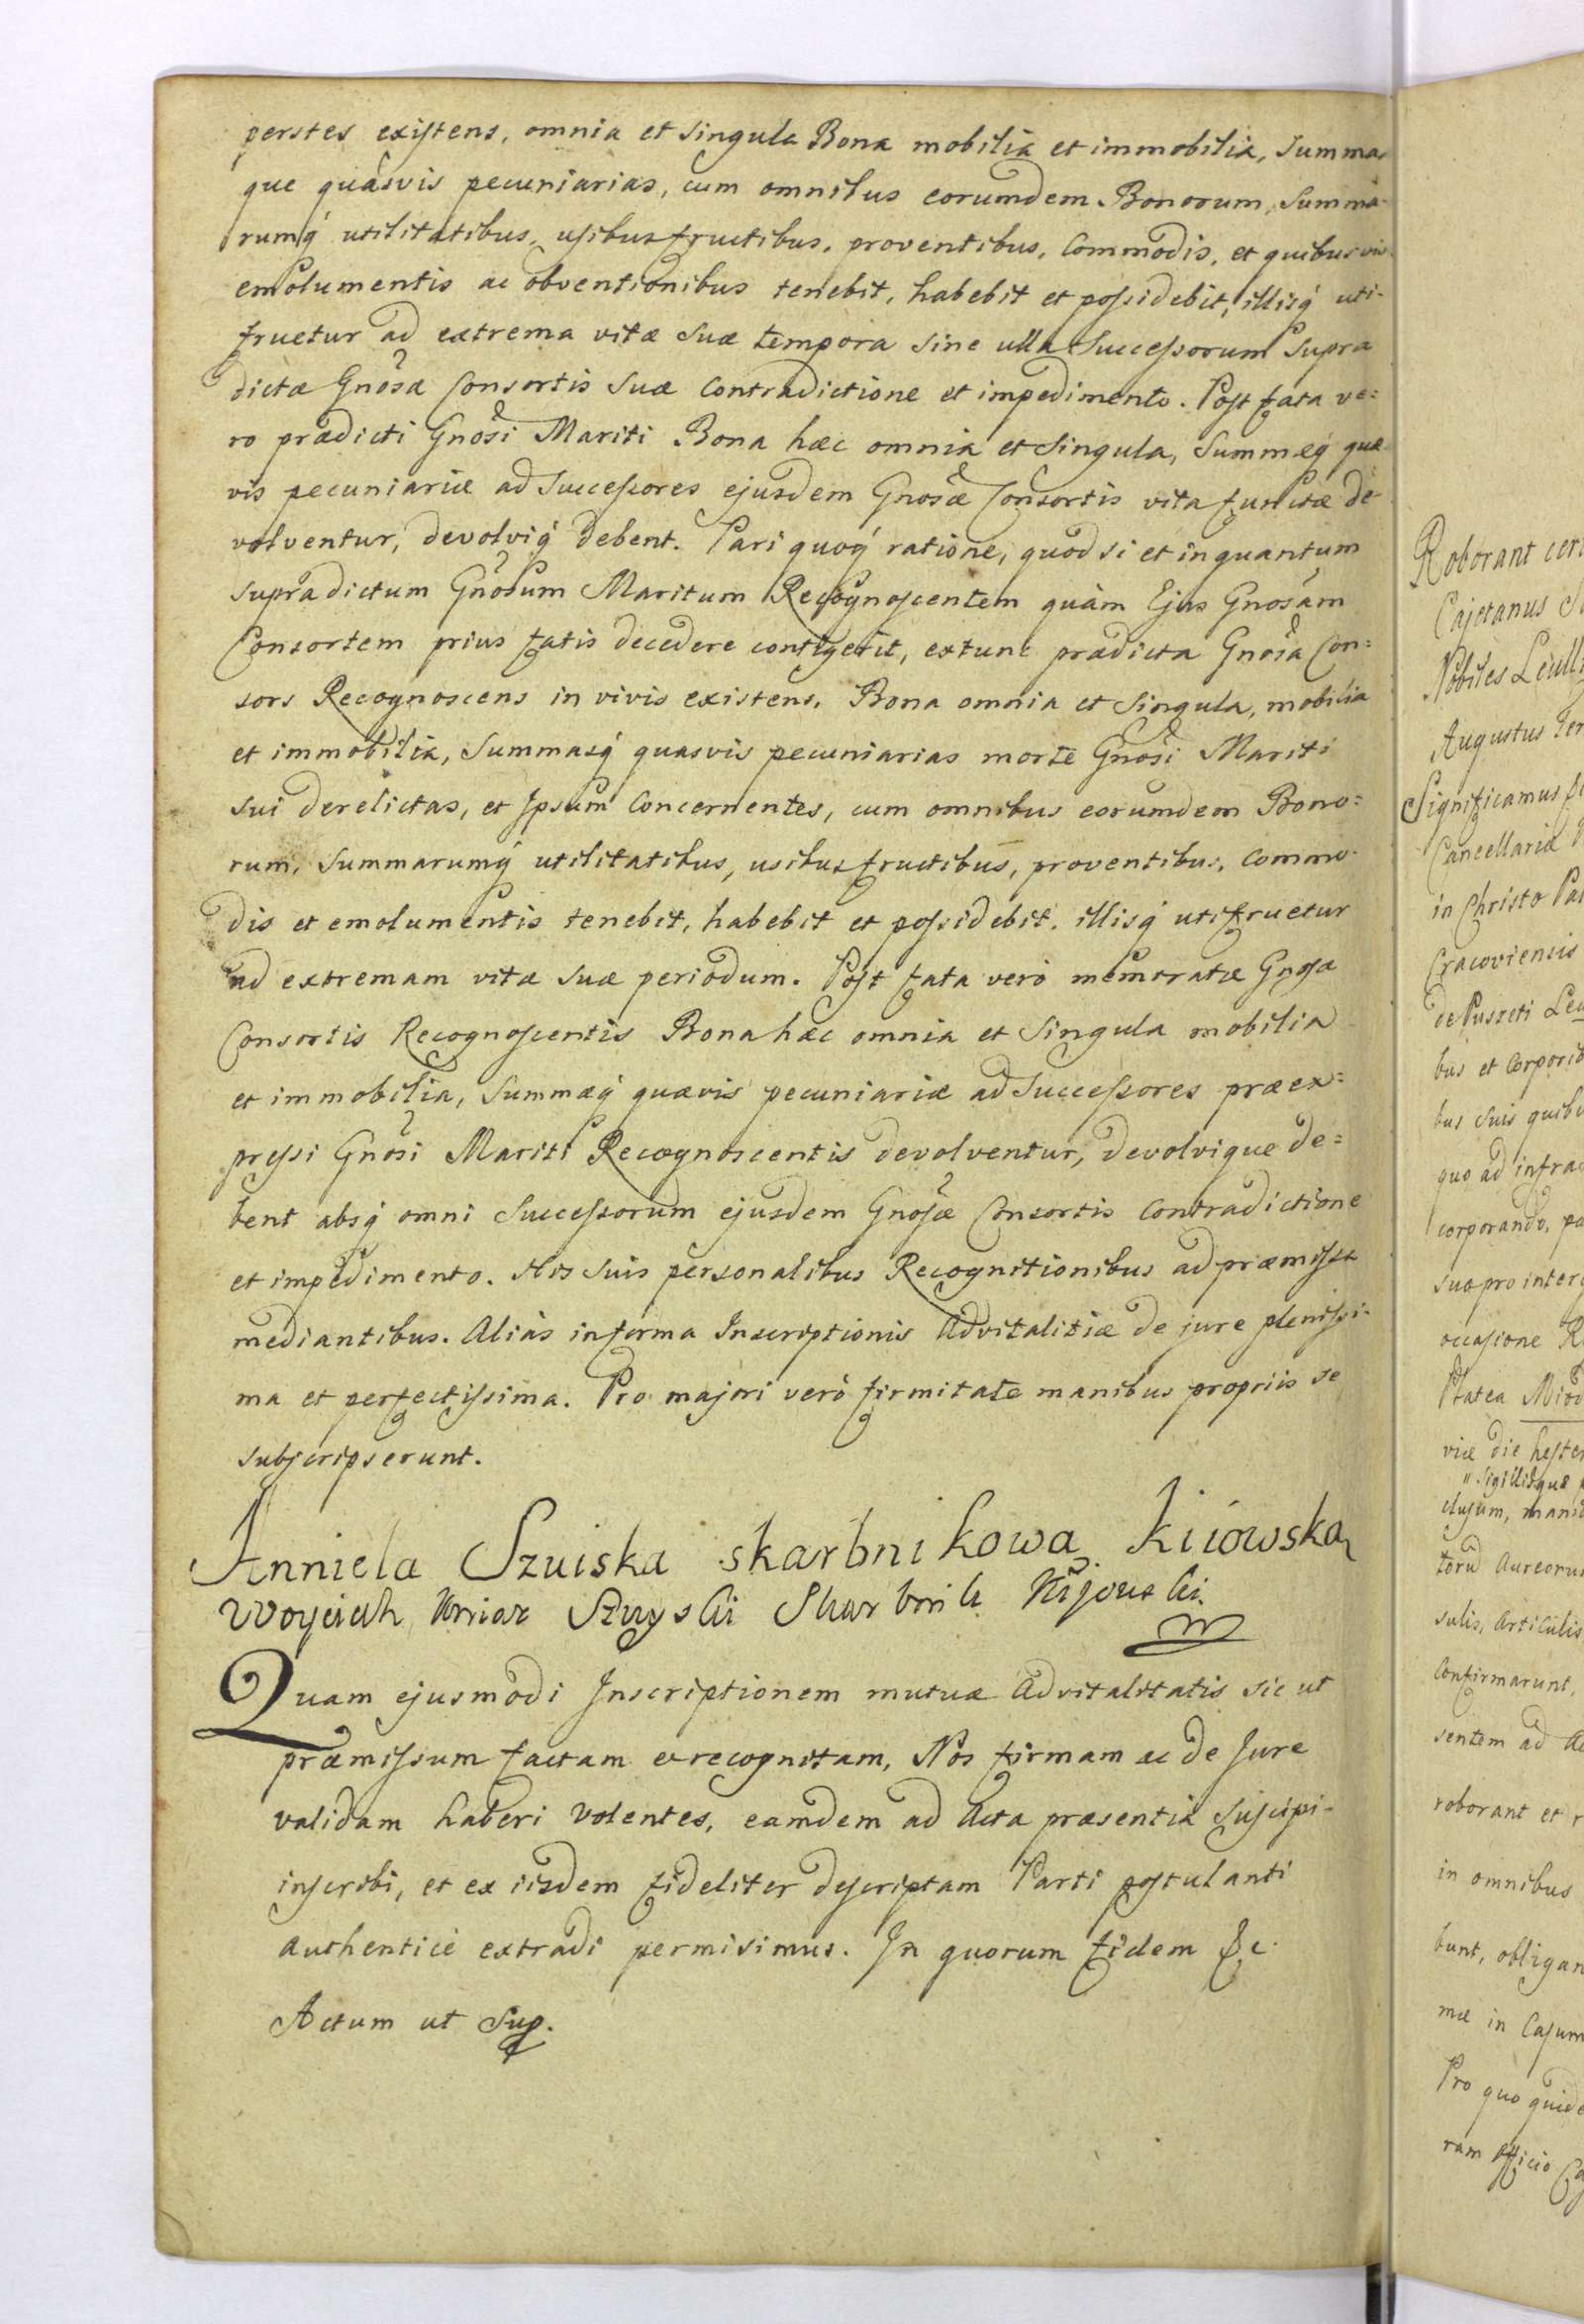 perstes existens, omnia et singula Bona mobilia et immobilia, Summas
que quasvis pecuniarias, cum omnibus eorumdem Bonorum, Summa-
rumq́ utilitatibus, usibusfructibus, proventibus, Commodis, et quibusvis
emolumentis ac obventionibus tenebit, habebit et possidebit, illisq́ uti-
fruetur ad extrema vitæ suæ tempora sine ulla Successorum Supra
dictæ Gnosæ Consortis suæ contradictione et impedimento. Post fata ve=
ro prædicti Gnosi Mariti Bona hæc omnia et singula, Summæq́ quæ-
vis pecuniariæ ad Successores ejusdem Gnosæ Consortis vita functæ de-
volventur, devolviq́ debent. Pari quoq́ ratione, quod si et inquantum
supradictum Gnosum Maritum Recognoscentem quàm Ejus Gnosam
Consortem prius fatis decedere contigerit, extunc prædicta Gnosa Con=
sors Recognoscens in vivis existens, Bona omnia et singula, mobilia
et immobilia, Summasq́ quasvis pecuniarias morte Gnosi Mariti
sui derelictas, et Ipsum Concernentes, cum omnibus eorumdem Bono=
rum, Summarumq́ utilitatibus, usibusfructibus, proventibus, Commo-
dis et emolumentis tenebit, habebit et possidebit, illisq́ utifruetur
ad extremam vitæ suæ periodum. Post fata verò memoratæ Gnosæ
Consortis Recognoscentis Bona hæc omnia et singula mobilia
et immobilia, Summæq́ quævis pecuniariæ ad Successores præex=
pressi Gnosi Mariti Recognoscentis devolventur, devolvique de=
bent absq́ omni Successorum ejusdem Gnosæ Consortis Contradictione
et impedimento. His suis personalibus Recognitionibus ad præmissa
mediantibus. Aliàs in forma Inscriptionis Advitalitiæ de jure plenissi-
ma et perfectissima. Pro majori verò firmitate manibus propriis se
subscripserunt.
Anniela Szuiska skarbnikowa kiiowska
Woyciech Szuyski Skarbnik Kijowski
Quam ejusmodi Inscriptionem mutuæ Advitalitatis sic ut
præmissum factam et recognitam, Nos firmam ac de Jure
validam haberi Volentes, eamdem ad Acta præsentia Suscipi-
inscribi, et ex iisdem fideliter descriptam Parti postulanti
authenticè extradi permisimus. In quorum fidem &c.
Actum ut Sup.
Roborant
Cajetanus
Nobiles
Augustus
Significamus
Cancellariæ
in Christo
Cracoviensis
de Puszeti
bus et Corporib
bus suis
quo ad infra
corporando,
sua pro
occasione
Platea Miod
viæ die hester
" Sigillisque
clusum,
Aureorum
sulis, Articulis
Confirmarunt,
sentem ad
roborant et
in omnibus
bunt,
mæ in Casum
Pro quo
ram Officio